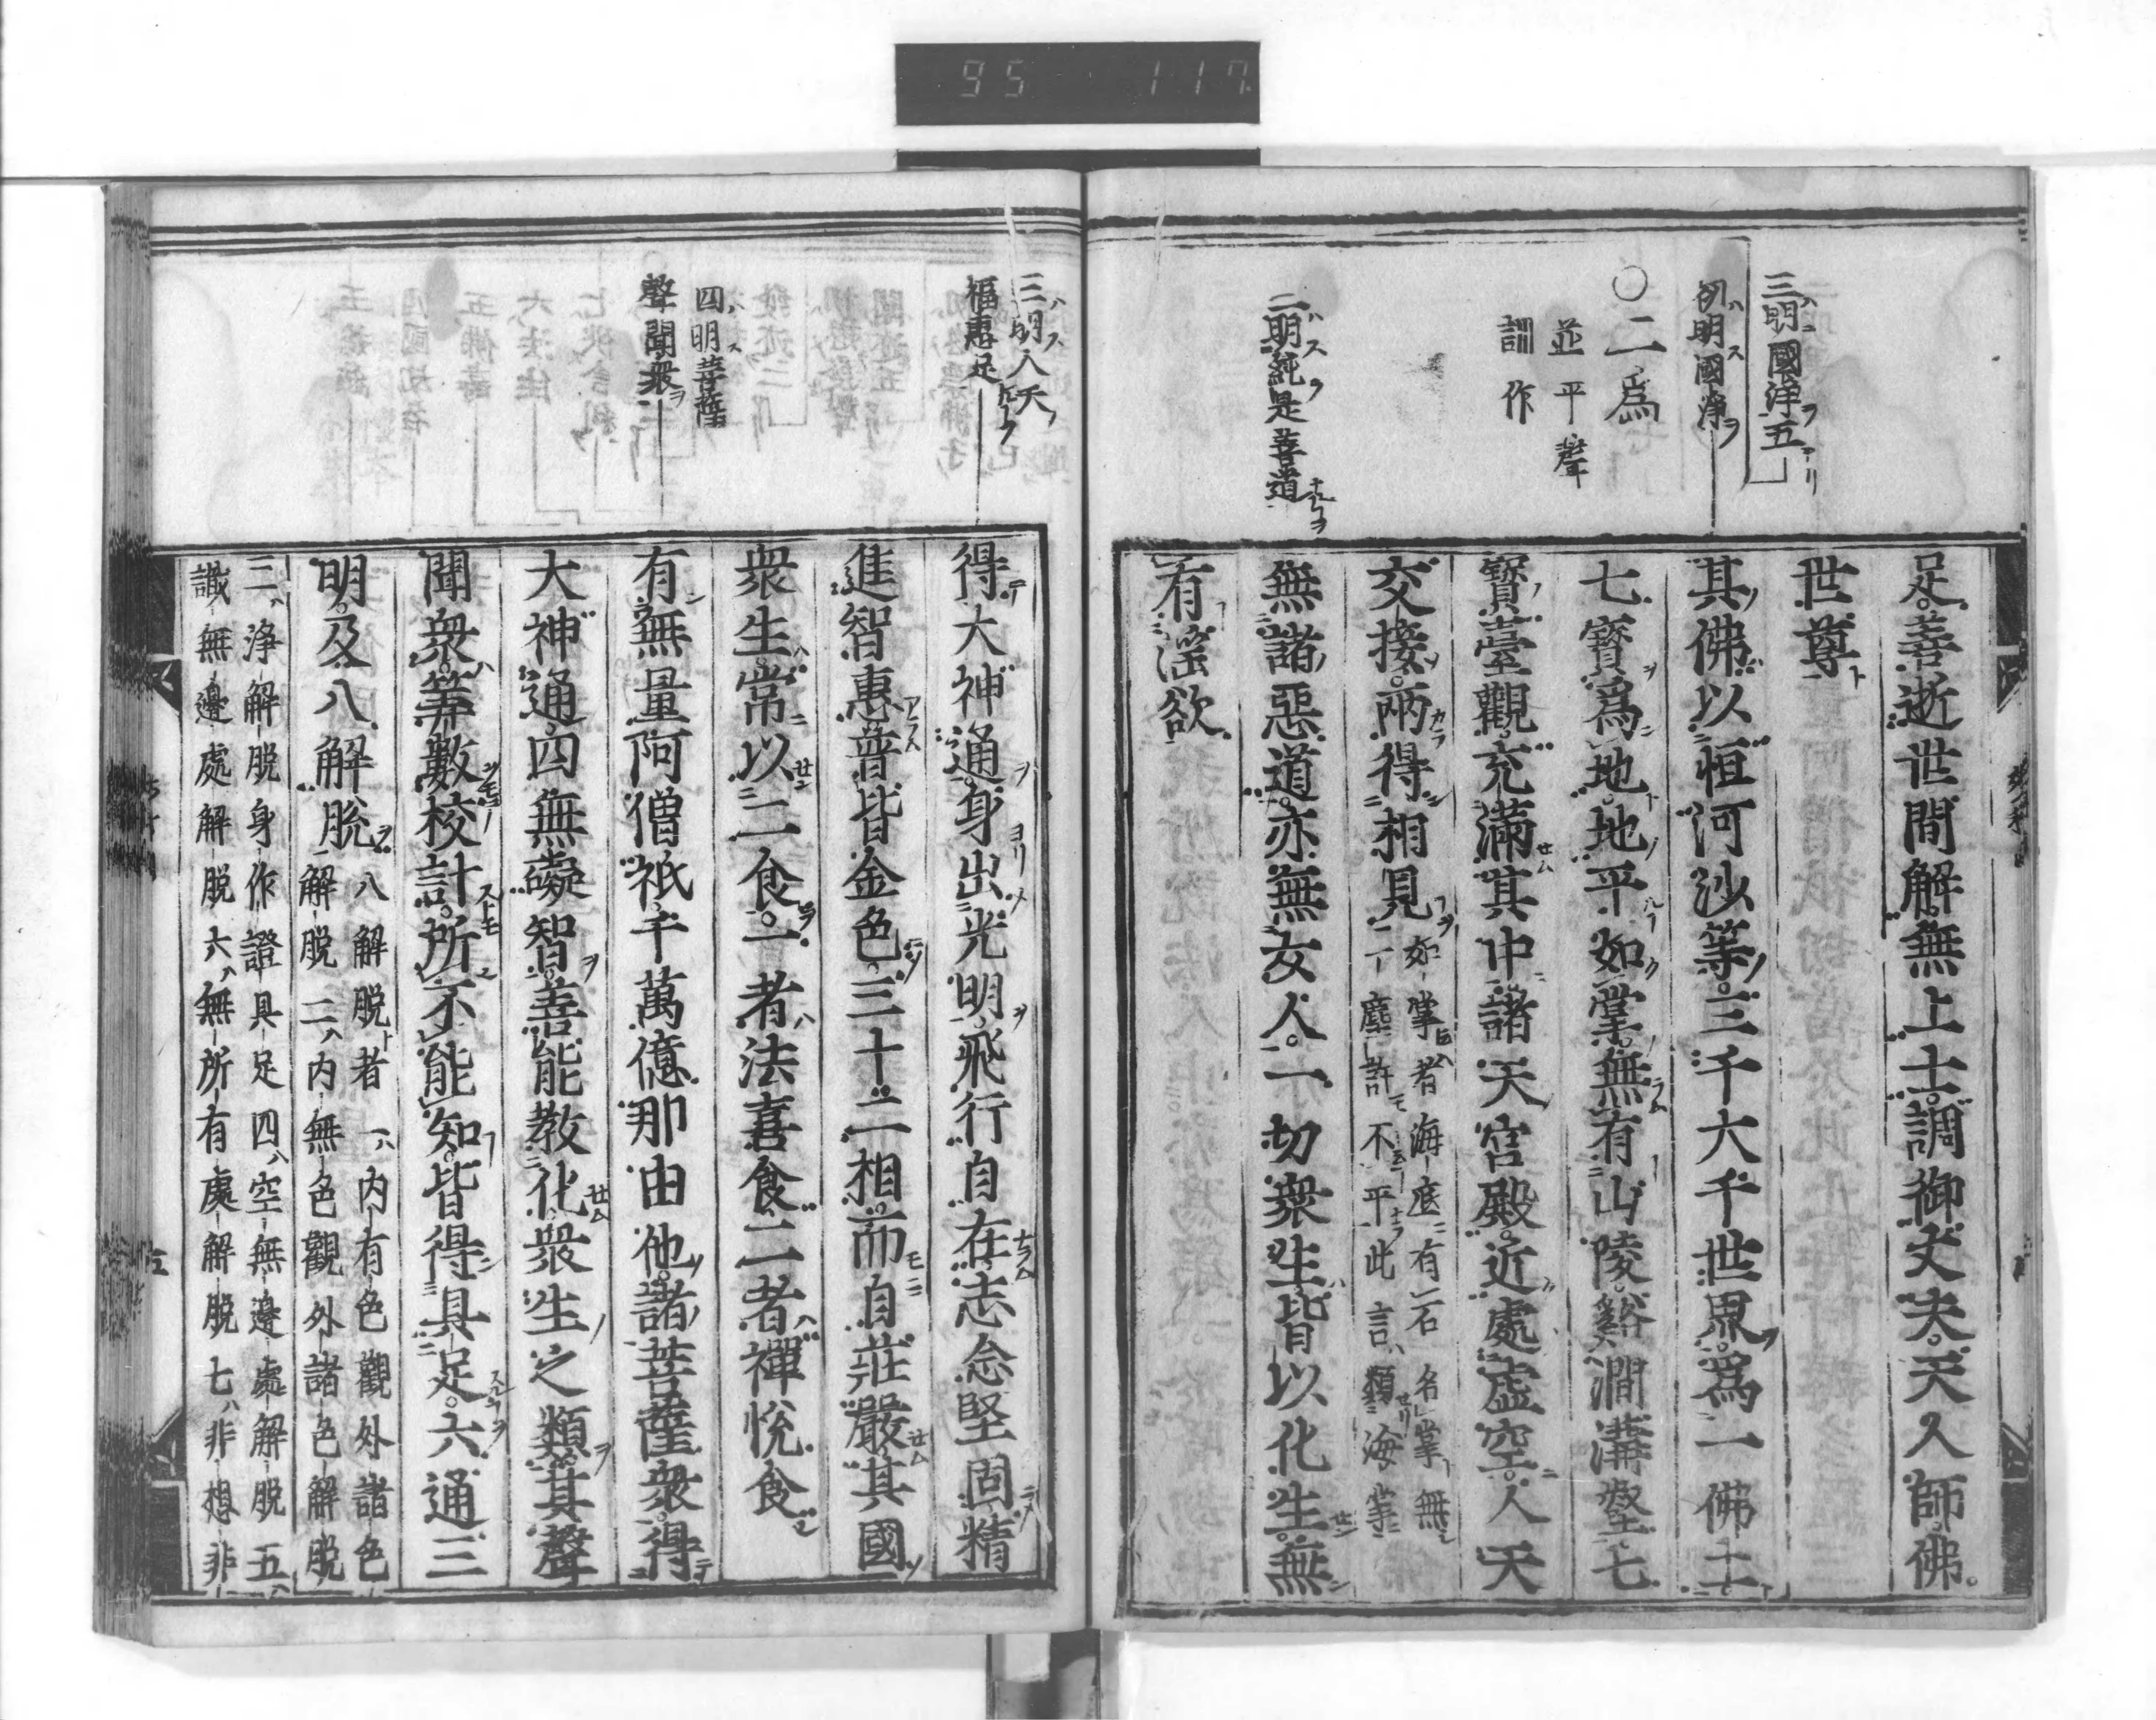 95 117
三明國浄五
初明國浄
○二爲
並平聲
訓作
二明純是善道
足善逝世間解無上士調御丈夫天人師佛
世尊
其佛以恒河沙等三千大千世界爲一佛土
七寶爲地地平如掌無有山陵谿澗溝壑七
寶臺觀充滿其中諸天宮殿近處虚空人天
交接兩得相見
如掌者海底有石名掌無
一塵許不平此言類海掌
無諸惡道亦無女人一切衆生皆以化生無
有婬欲
三明人天
福惠足
四明菩薩
聲聞衆
得大神通身出光明飛行自在志念堅固精
進智惠普皆金色三十二相而自莊嚴其國
衆生常以二食一者法喜食二者禪悅食
有無量阿僧祇千萬億那由他諸菩薩衆得
大神通四無礙智善能教化衆生之類其聲
聞衆等數校計所不能知皆得具足六通三
明及八解脫
八解脫者一内有色觀外諸色
解脫二内無色觀外諸色解脫
三浄解脫身作證具足四空無邊處解脫五
識無邊處解脫六無所有處解脫七非想非